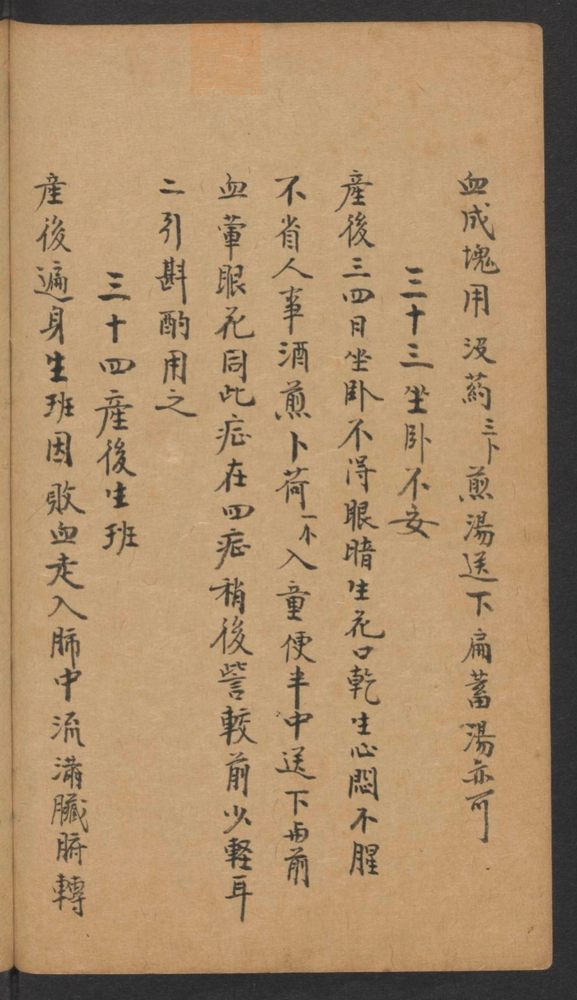 血成塊用没药三卜煎湯送下扁蓄湯亦可
三十三坐卧不安
產後三四日坐卧不得眼暗生花口乾生心悶不腥
不省人事酒煎卜荷一个入童便半中送下与前
血暈眼花同此症在四症稍後訾較前少輕耳
二引斟酌用之
三十四產後生班
產後遍身生班因敗血走入肺中流滿臟腑轉